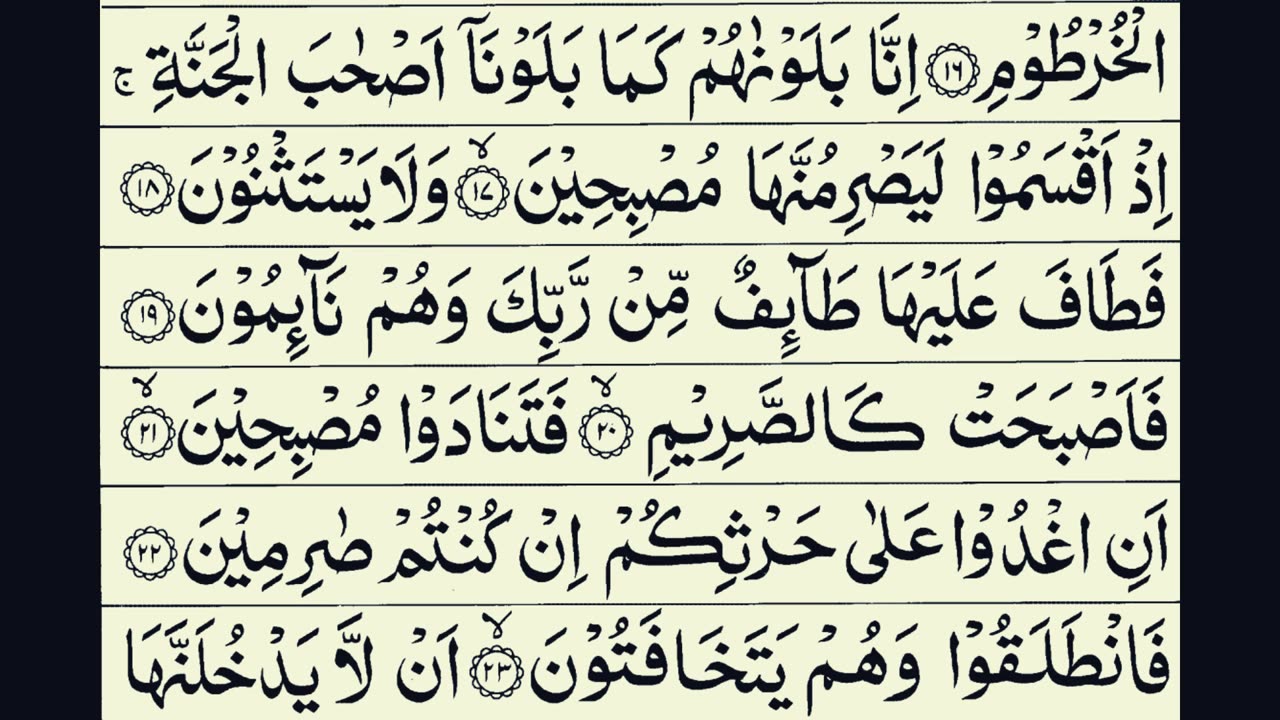 الْخُرْطُوْمِ ﴿۱۶﴾ اِنَّا بَلَوْنٰهُمْ كَمَا بَلَوْنَاۤ اَصْحٰبَ الْجَنَّةِ ۚ
اِذْ اَقْسَمُوْا لَيَصْرِمُنَّهَا مُصْبِحِيْنَ ۙ﴿۱۷﴾ وَلَا يَسْتَثْنُوْنَ ﴿۱۸﴾
فَطَافَ عَلَيْهَا طَآىِٕفٌ مِّنْ رَّبِّكَ وَهُمْ نَآىِٕمُوْنَ ﴿۱۹﴾
فَاَصْبَحَتْ كَالصَّرِيْمِ ۙ﴿۲۰﴾ فَتَنَادَوْا مُصْبِحِيْنَ ۙ﴿۲۱﴾
اَنِ اغْدُوْا عَلٰى حَرْثِكُمْ اِنْ كُنْتُمْ صٰرِمِيْنَ ﴿۲۲﴾
فَانْطَلَقُوْا وَهُمْ يَتَخَافَتُوْنَ ۙ﴿۲۳﴾ اَنْ لَّا يَدْخُلَنَّهَا